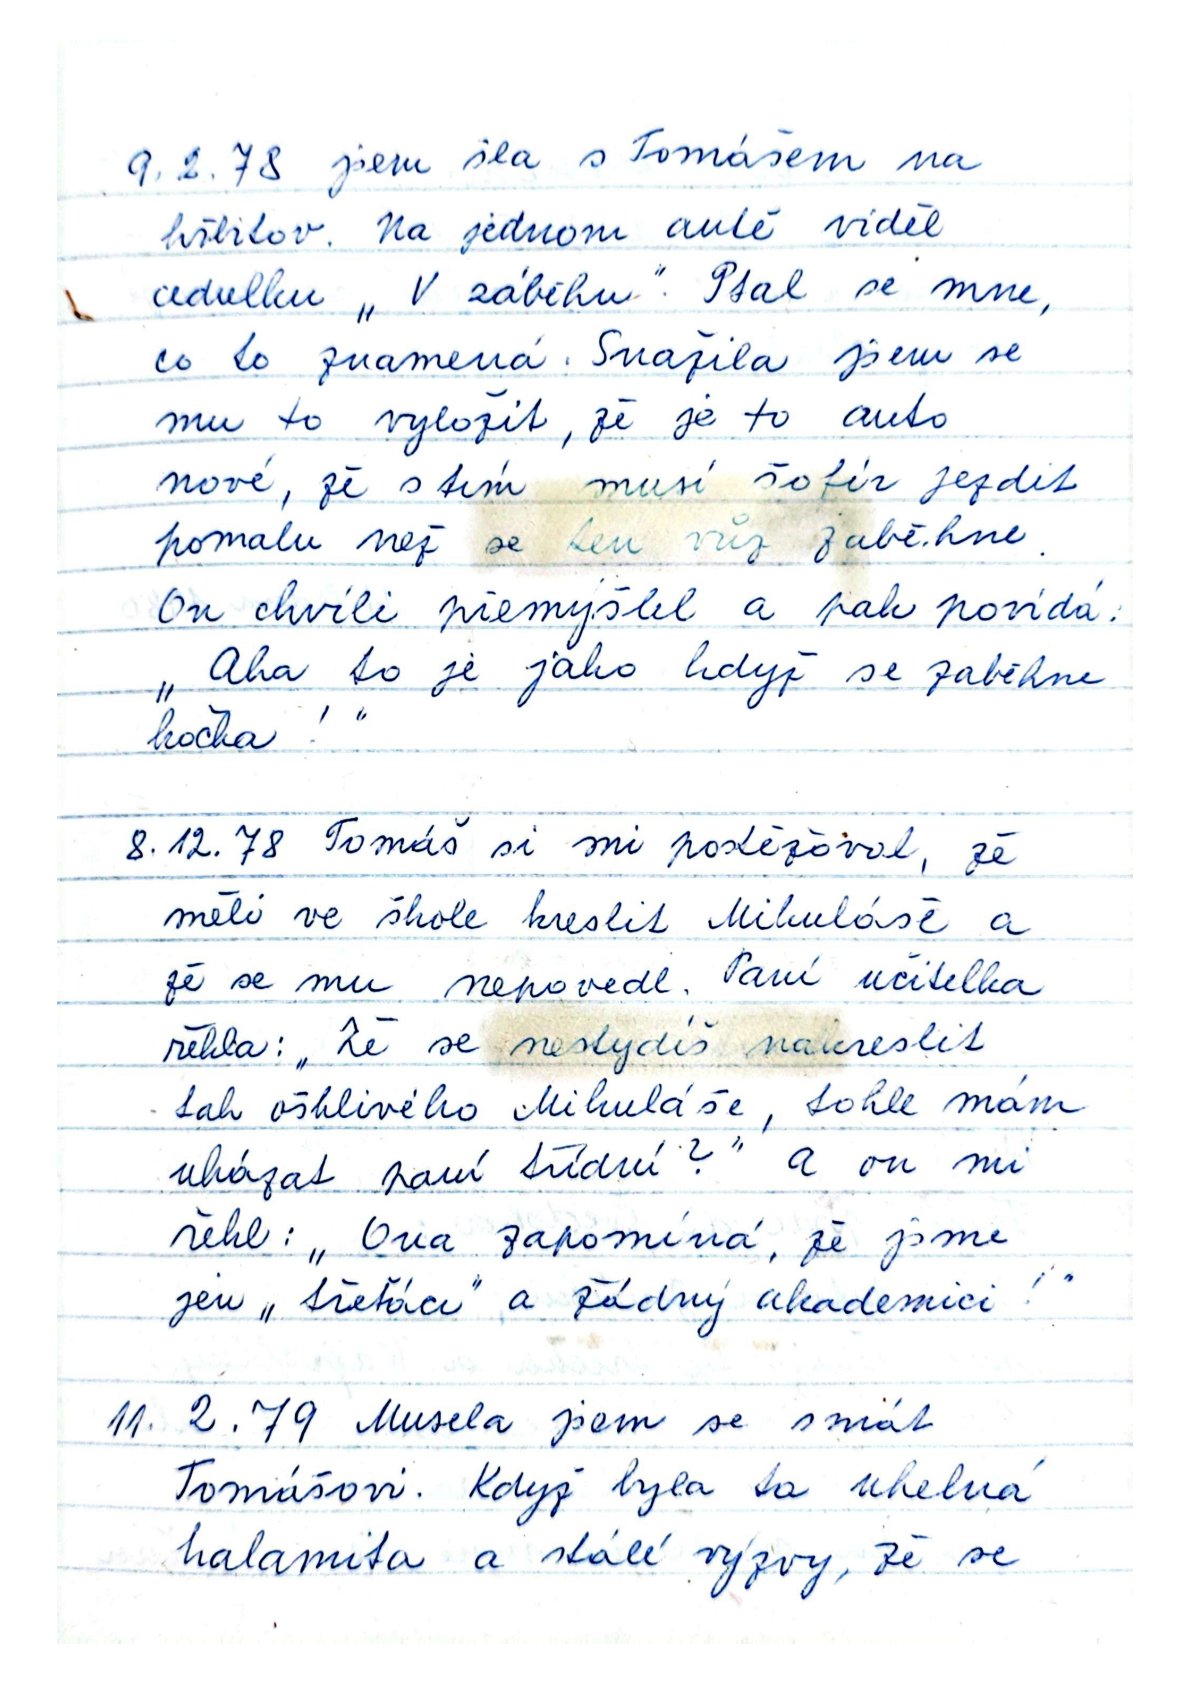 9. 2. 78 jsem šla s Tomášem na
hřbitov. Na jednom autě viděl
cedulku „V záběhu". Ptal se mne,
co to znamená. Snažila jsem se
mu to vyložit, že je to auto
nové, že s tím musí šofér jezdit
pomalu než se ten vůz zaběhne.
On chvíli přemýšlel a pak povídá:
„Aha to je jako když se zaběhne
kočka!"
8. 12. 78 Tomáš si mi postěžoval, že
měli ve škole kreslit Mikuláše a
že se mu nepovedl. Paní učitelka
řekla: „Že se nestydíš nakreslit
tak ošklivého Mikuláše, tohle mám
ukázat paní třídní?" A on mi
řekl: „Ona zapomíná, že jsme
jen „třeťáci" a žádný akademici!"
11. 2. 79 Musela jsem se smát
Tomášovi. Když byla ta uhelná
kalamita a stálé výzvy, že se